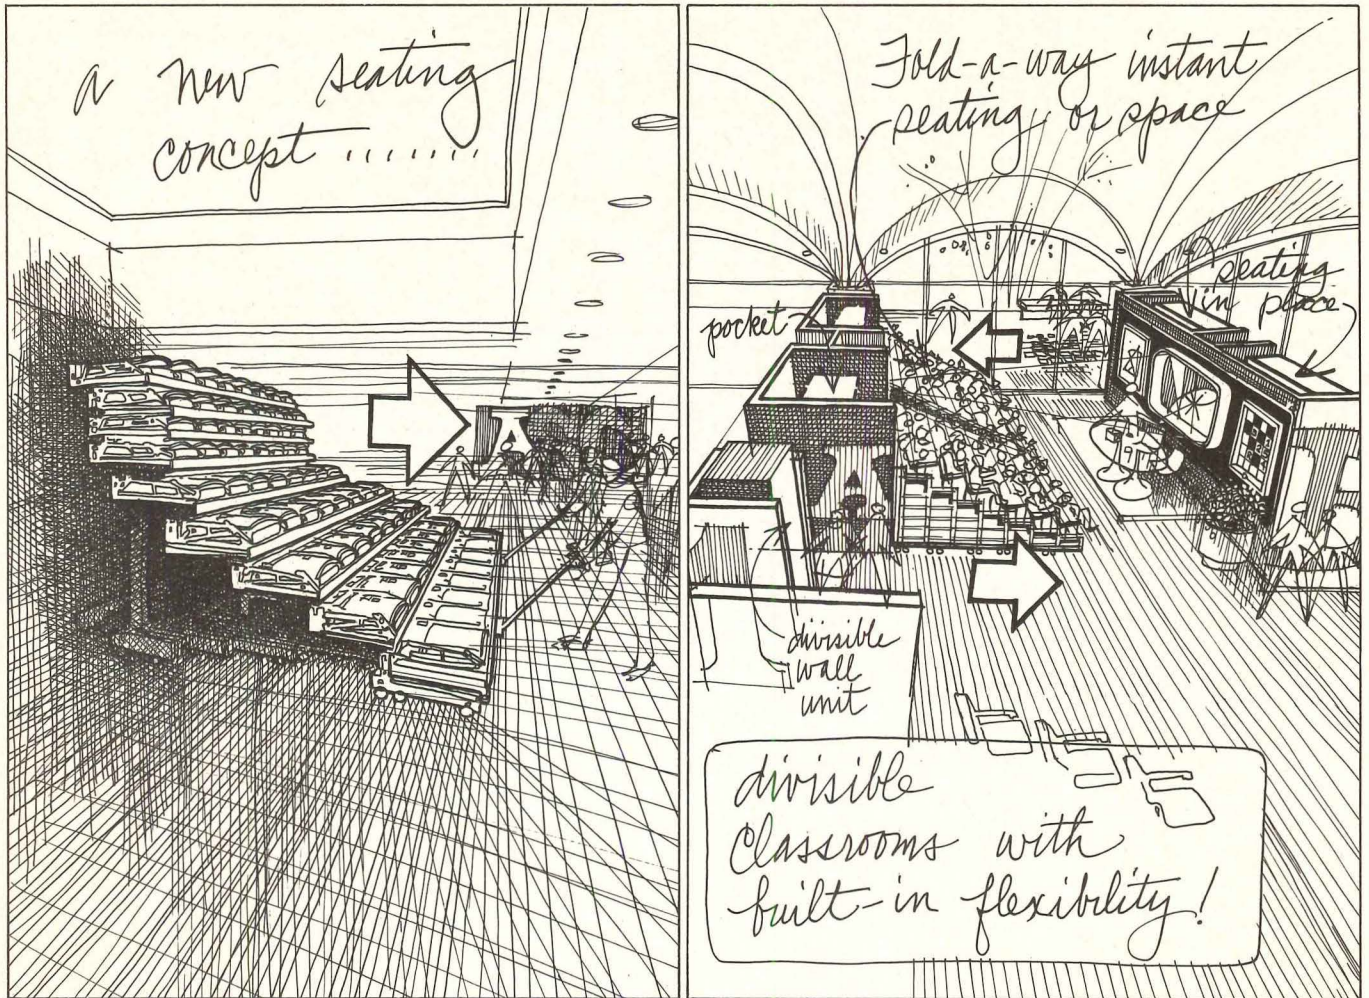 a new seating
concept .......
Fold-a-way instant
seating or space
pocket
seating
in place
divisible
wall
unit
divisible
classrooms with
built-in flexibility!